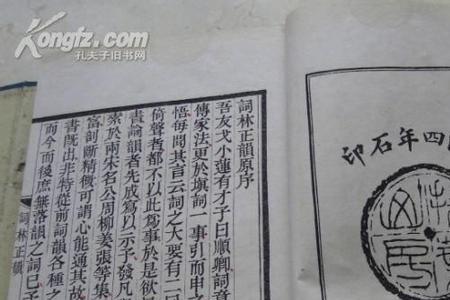 Kongfz.com
孔夫子旧书网
四年石印
詞林正韻原序
吾友戈小蓮有才子曰順卿詞章
傳家法更於塡詞一事引而申之
悟每問其旨云詞之大要有二
倚聲者都不以此為事於是欲
責論韻者先成為以示予發凡
索於兩宋名公周柳姜張等集
富剖斷精微可謂心能通其故
書既出非特從前詞韻各種之
而今而後庶無落韻之詞已
詞林正韻